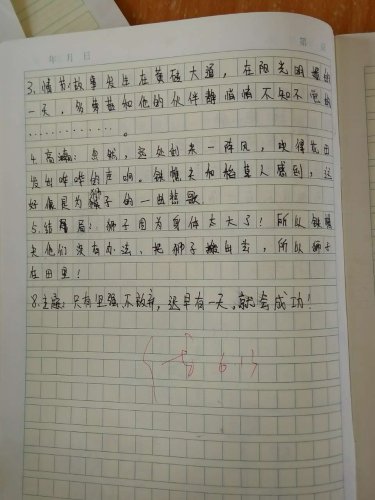 年 月 日
第 页
3.情节:故事发生在黄砖大道,在阳光明媚的
一天,多萝茜和他的伙伴静悄悄不知不觉的
…………。
4.高潮:忽然,远处刮来一阵风,吹得花田
发出哗哗的声响。铁樵夫和稻草人感到,这
好像是为狮子的一曲悲歌
5.结局:狮子因为身体太大了!所以铁樵
夫他们没有办法,把狮子搬出去,所以狮子
在田里!
8.主题:只有坚强,不放弃,迟早有一天,就会成功!
6.13